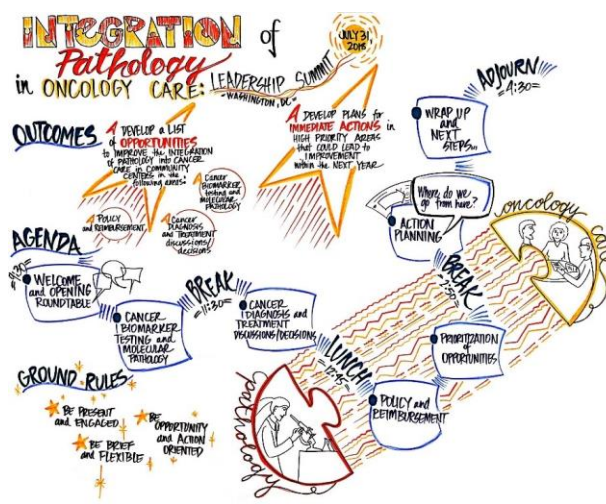 INTEGRATION of
Pathology
in ONCOLOGY CARE:
LEADERSHIP SUMMIT
-WASHINGTON, DC-
JULY 31
2018
OUTCOMES
A DEVELOP A LIST
of OPPORTUNITIES
to IMPROVE the INTEGRATION
of PATHOLOGY into CANCER
CARE in COMMUNITY
CENTERS in the
following areas:
A POLICY
and REIMBURSEMENT
A Cancer
BIOMARKER
testing and
MOLECULAR
PATHOLOGY
A Cancer
DIAGNOSIS
and TREATMENT
discussions/
decisions
A DEVELOP PLANS for
IMMEDIATE ACTIONS in
HIGH PRIORITY AREAS
that COULD LEAD to
IMPROVEMENT
within the NEXT YEAR
AGENDA
=9:30=
WELCOME
and OPENING
ROUNDTABLE
CANCER
BIOMARKER
TESTING and
MOLECULAR
PATHOLOGY
BREAK
=11:30=
CANCER
DIAGNOSIS and
TREATMENT
DISCUSSIONS/DECISIONS
LUNCH
=12:45=
POLICY and
REIMBURSEMENT
PRIORITIZATION
of
OPPORTUNITIES
BREAK
ACTION
PLANNING
Where do we
go from here?
WRAP UP
and NEXT
STEPS...
ADJOURN
=4:30=
pathology
oncology care
GROUND RULES
BE PRESENT
and ENGAGED
BE BRIEF
and FLEXIBLE
BE
OPPORTUNITY
and ACTION
ORIENTED